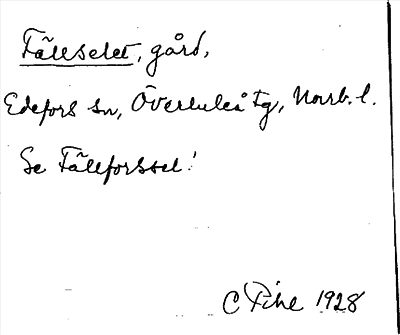 Fällselet, gård,
Edefors sn, Överluleå tg, Norrb. l.
Se Fällforssel!
C Pihl 1928